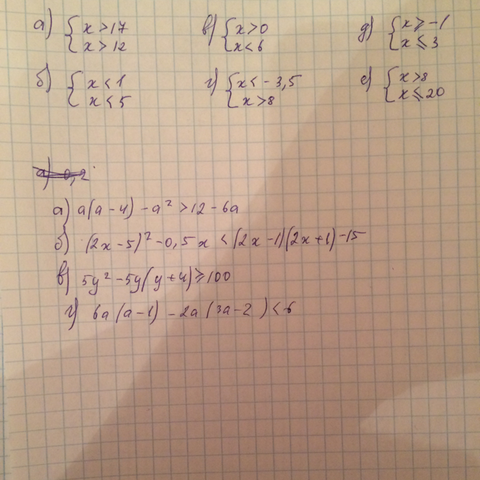 а) { x > 17 в) { x > 0 д) { x ⩾ -1
x > 12 x < 6 x ⩽ 3
б) { x < 1 г) { x < - 3,5 е) { x > 8
x < 5 x > 8 x ⩽ 20
а) a(a - 4) - a² > 12 - 6a
б) (2x - 5)² - 0,5x < (2x - 1)(2x + 1) - 15
в) 5y² - 5y(y + 4) ⩾ 100
г) 6a(a - 1) - 2a(3a - 2) < 6